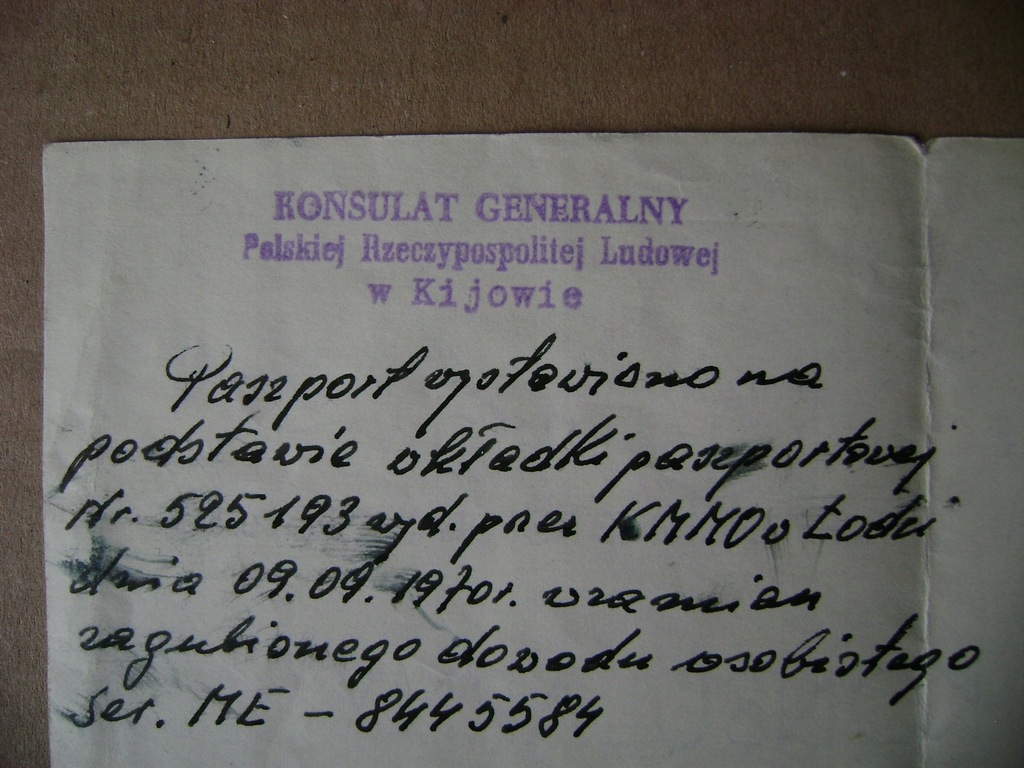 KONSULAT GENERALNY
Polskiej Rzeczypospolitej Ludowej
w Kijowie
Paszport wystawiono na
podstawie wkładki paszportowej
Nr. 525193 wyd. przez KMMO w Łodzi
dnia 09.09.1970r. wzamian
zagubionego dowodu osobistego
Ser. ME - 8445584